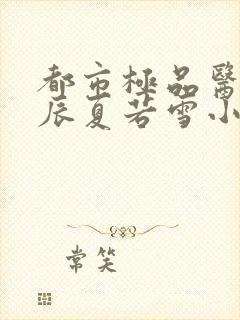 都市極品醫
辰夏若雪小
常笑